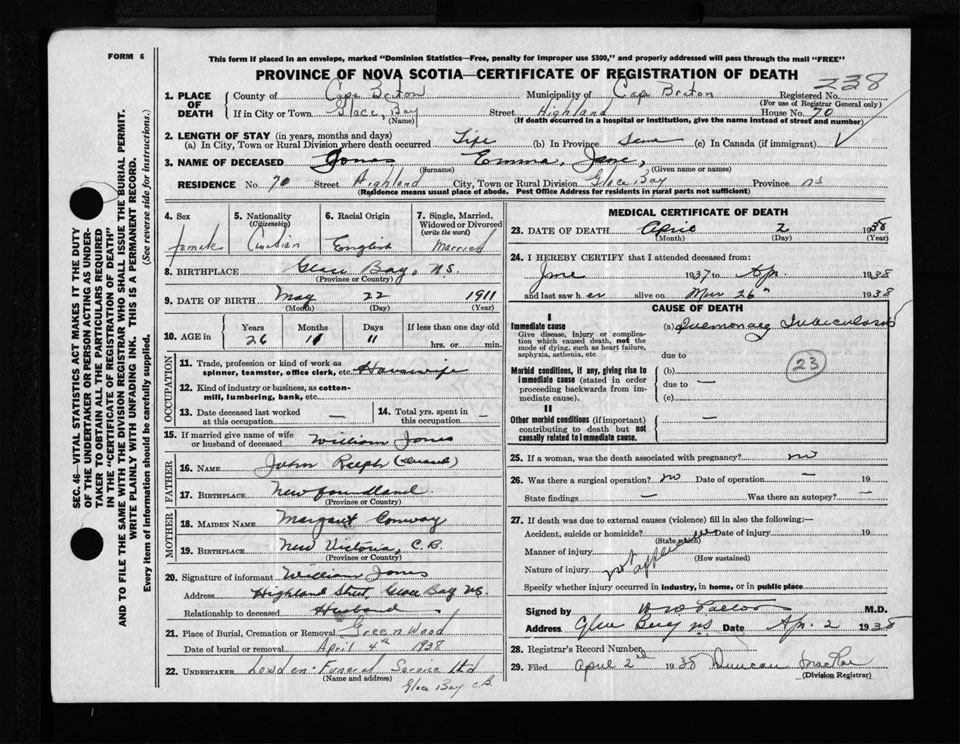 FORM 6
This form if placed in an envelope, marked "Dominion Statistics—Free, penalty for improper use $300," and properly addressed will pass through the mail "FREE"
PROVINCE OF NOVA SCOTIA—CERTIFICATE OF REGISTRATION OF DEATH
238
1. PLACE OF DEATH County of Cape Breton Municipality of Cape Breton Registered No.
(For use of Registrar General only)
If in City or Town Glace Bay Street Highland House No. 70
(Name) (If death occurred in a hospital or institution, give the name instead of street and number)
2. LENGTH OF STAY (in years, months and days)
(a) In City, Town or Rural Division where death occurred Life (b) In Province (c) In Canada (if immigrant)
3. NAME OF DECEASED Jones Emma, Jane,
(Surname) (Given name or names)
RESIDENCE No. 70 Street Highland City, Town or Rural Division Glace Bay Province NS
(Residence means usual place of abode. Post Office Address for residents in rural parts not sufficient)
4. Sex female
5. Nationality (Citizenship) Canadian
6. Racial Origin English
7. Single, Married, Widowed or Divorced (write the word) Married
8. BIRTHPLACE Glace Bay, N.S.
(Province or Country)
9. DATE OF BIRTH May 22 1911
(Month) (Day) (Year)
10. AGE in Years 26 Months 10 Days 11 If less than one day old hrs. or min.
OCCUPATION
11. Trade, profession or kind of work as spinner, teamster, office clerk, etc. Housewife
12. Kind of industry or business, as cotton-mill, lumbering, bank, etc.
13. Date deceased last worked at this occupation —
14. Total yrs. spent in this occupation —
15. If married give name of wife or husband of deceased William Jones
FATHER
16. NAME John Ralph
17. BIRTHPLACE Newfoundland.
(Province or Country)
MOTHER
18. MAIDEN NAME Margaret Conway
19. BIRTHPLACE New Victoria, C.B.
(Province or Country)
20. Signature of informant William Jones
Address Highland Street, Glace Bay NS.
Relationship to deceased Husband
21. Place of Burial, Cremation or Removal Greenwood
Date of burial or removal April 4th 1938
22. UNDERTAKER Lowden Funeral Service Ltd
(Name and address)
Glace Bay C.B.
MEDICAL CERTIFICATE OF DEATH
23. DATE OF DEATH April 2 1938
(Month) (Day) (Year)
24. I HEREBY CERTIFY that I attended deceased from:
June 1937 to Ap. 1938
and last saw h er alive on Mar 26" 1938
CAUSE OF DEATH
I
Immediate cause (a) Pulmonary Tuberculosis
Give disease, injury or complication which caused death, not the mode of dying, such as heart failure, asphyxia, asthenia, etc
due to
23
Morbid conditions, if any, giving rise to immediate cause (stated in order proceeding backwards from immediate cause).
(b)
due to —
(c)
II
Other morbid conditions (if important) contributing to death but not causally related to immediate cause.
25. If a woman, was the death associated with pregnancy? no
26. Was there a surgical operation? no Date of operation — 19
State findings — Was there an autopsy? —
27. If death was due to external causes (violence) fill in also the following:—
Accident, suicide or homicide? Date of injury 19
(State which)
Manner of injury
(How sustained)
Nature of injury
Specify whether injury occurred in industry, in home, or in public place
Signed by M.D.
Address Glace Bay NS Date Ap. 2 1938
28. Registrar's Record Number
29. Filed April 2nd 1938 Duncan MacRae
(Division Registrar)
SEC. 46—VITAL STATISTICS ACT MAKES IT THE DUTY
OF THE UNDERTAKER OR PERSON ACTING AS UNDER-
TAKER TO OBTAIN ALL THE PARTICULARS REQUIRED
IN THE "CERTIFICATE OF REGISTRATION OF DEATH"
AND TO FILE THE SAME WITH THE DIVISION REGISTRAR WHO SHALL ISSUE THE BURIAL PERMIT.
WRITE PLAINLY WITH UNFADING INK. THIS IS A PERMANENT RECORD.
Every item of information should be carefully supplied. (See reverse side for instructions.)